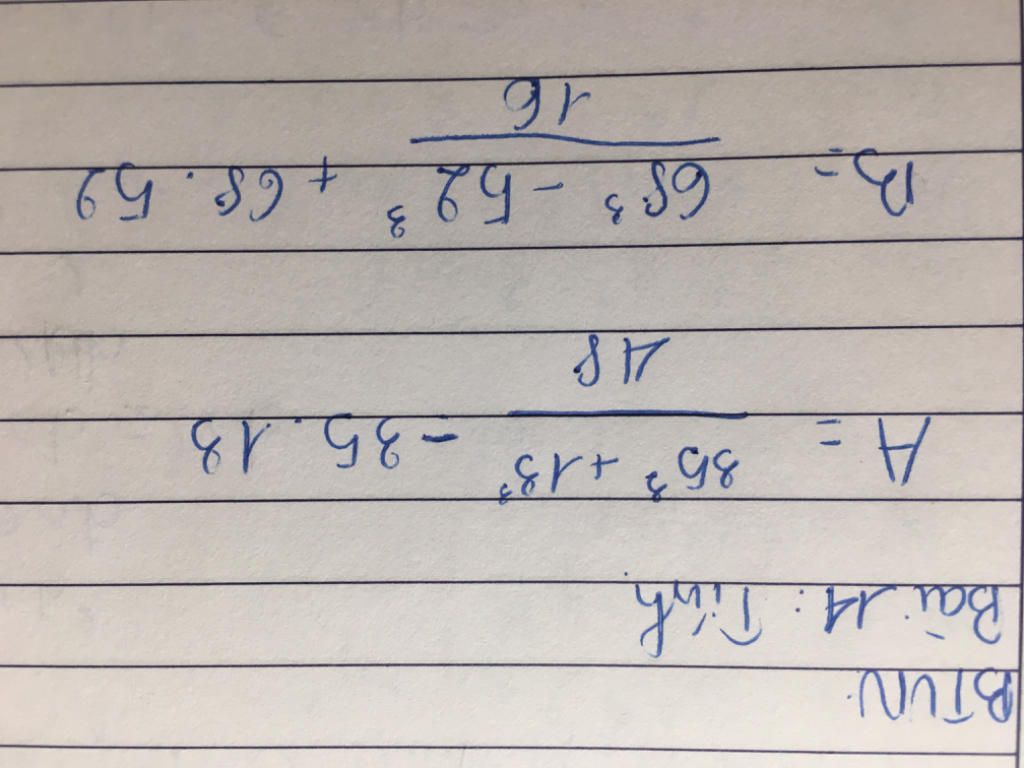 BTVN
Bài 11: Tính
A = \frac{35³ + 13³}{48} - 35 . 13
B = \frac{68³ - 52³}{16} + 68 . 52